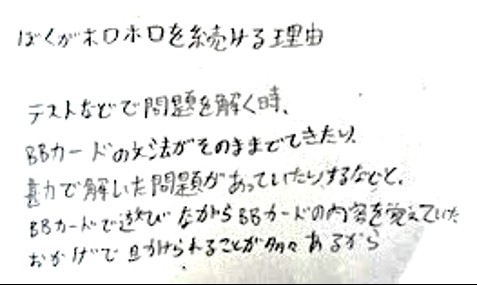 ぼくがホロホロを続ける理由
テストなどで問題を解く時、
BBカードの文法がそのままでてきたり、
勘で解いた問題があっていたりするなど、
BBカードで遊びながらBBカードの内容を覚えていた
おかげで助けられることが多々あるから